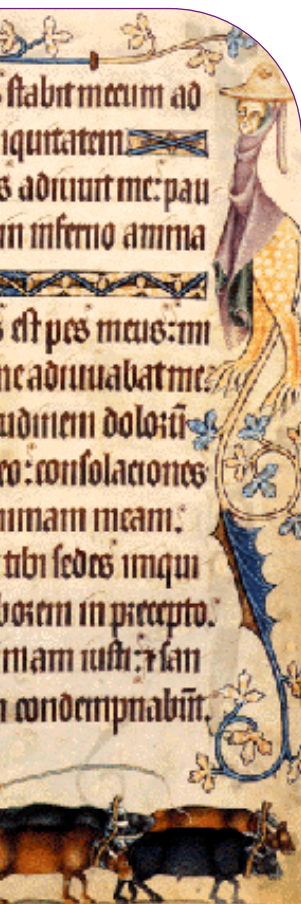 s stabit mecum ad
iquitatem
s adiuuit me: pau
in inferno anima
s est pes meus: mi
ne adiuuabat me:
udinem dolorū
eo: consolaciones
nimam meam.
tibi sedes iniqui
borem in precepto.
imam iusti: ⁊ san
n condempnabūt.